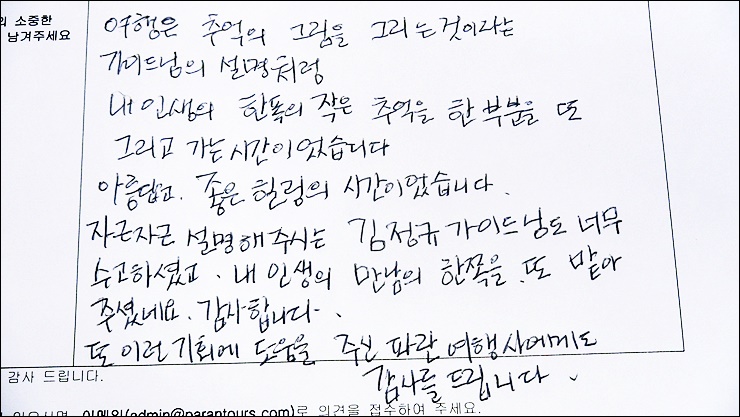 의 소중한
남겨주세요
여행은 추억의 그림을 그리는것이라는
가이드님의 설명처럼
내 인생의 한폭의 작은 추억을 한 부분을 또
그리고 가는 시간이었습니다
아름답고. 좋은 힐링의 시간이었습니다.
자근자근 설명해주시는 김정규가이드님도 너무
수고하셨고. 내 인생의 만남의 한쪽을 또 맡아
주셨네요. 감사합니다.
또 이런 기회에 도움을 주신 파란여행사에게도
감사를 드립니다.
감사 드립니다.
이메일(admin@parantours.com)로 의견을 접수하여 주세요.